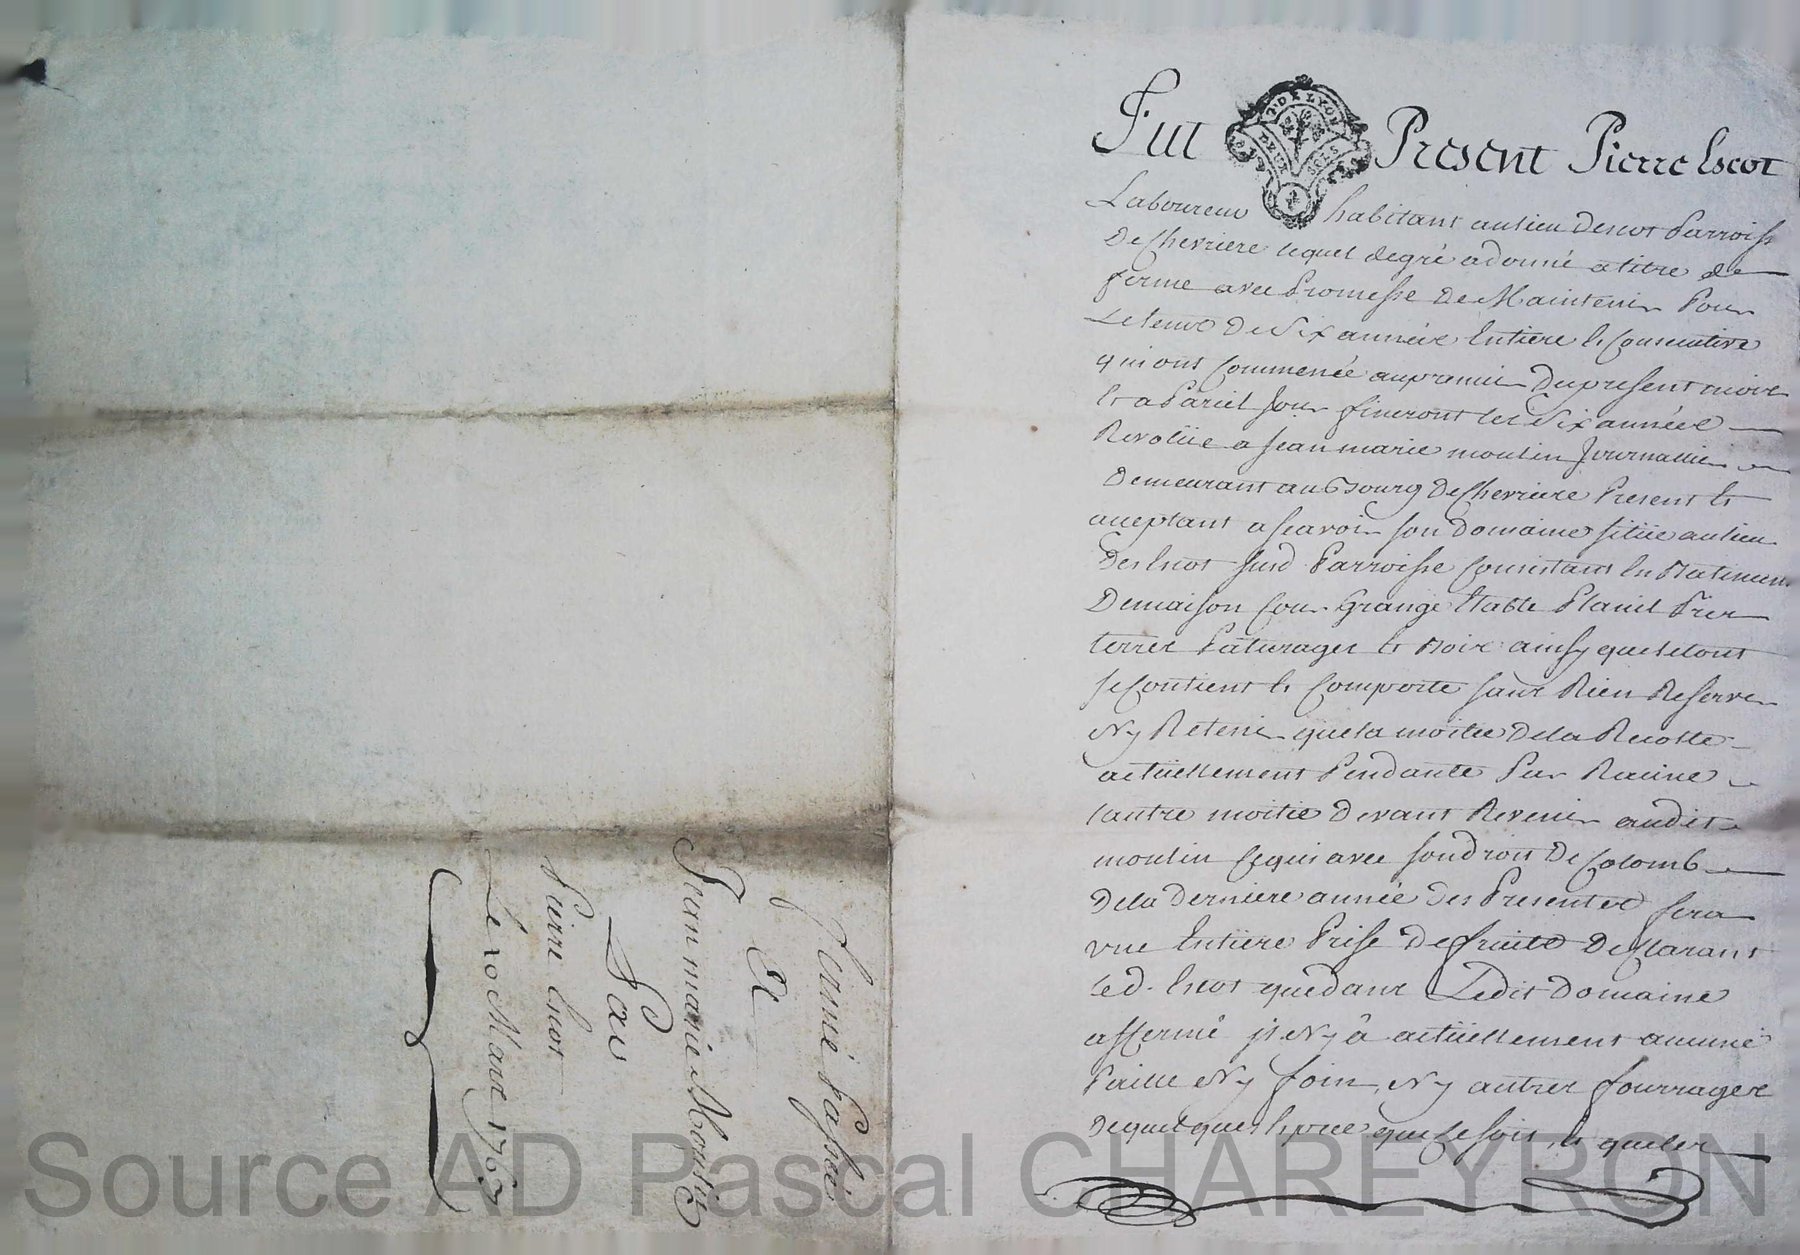 Fut Present Pierre Escot
Laboureur habitant au lieu descot Parroisse
De Chevriere lequel degré a donné a titre de
ferme avec Promesse De Maintenir Pour
Le temp De Six année Entiere Et Consecutive
qui ont Commencé au premier Du present moix
Et a Pariel Jour finiront les Six année
Revolüe a Jean marie moulin Journallier
Demeurant au Bourg De Chevriere Present Et
aceptant a scavoir son Domaine sitüe au lieu
Des Escot susd Parroisse Consistant En Batiment
De maison Cour Grange Etable Plassel Préz
terres Paturages Et Boix ainsy que le tout
se Contient Et Comporte sans Rien Reserver
Ny Retenir que la moitié De la Recolte
actüellement Pendante Par Racine
Lautre moitié Devant Revenir audit
moulin Ce qui avec son droit De Colomb
De la Derniere année Des Presentes sera
une Entiere Prise De fruits Declarant
Led. Escot que dans Ledit Domaine
affermé il Ny à actüellement aucune
Paille Ny foin, Ny autres fourrages
De quelques Espece que Ce soit, Et queles
fermé Passée
A
Jean marie Moulin
Par
Pierre Escot
Le 10 Mars 1763
DE LYON
DEUX SOLS
Source AD Pascal CHAREYRON